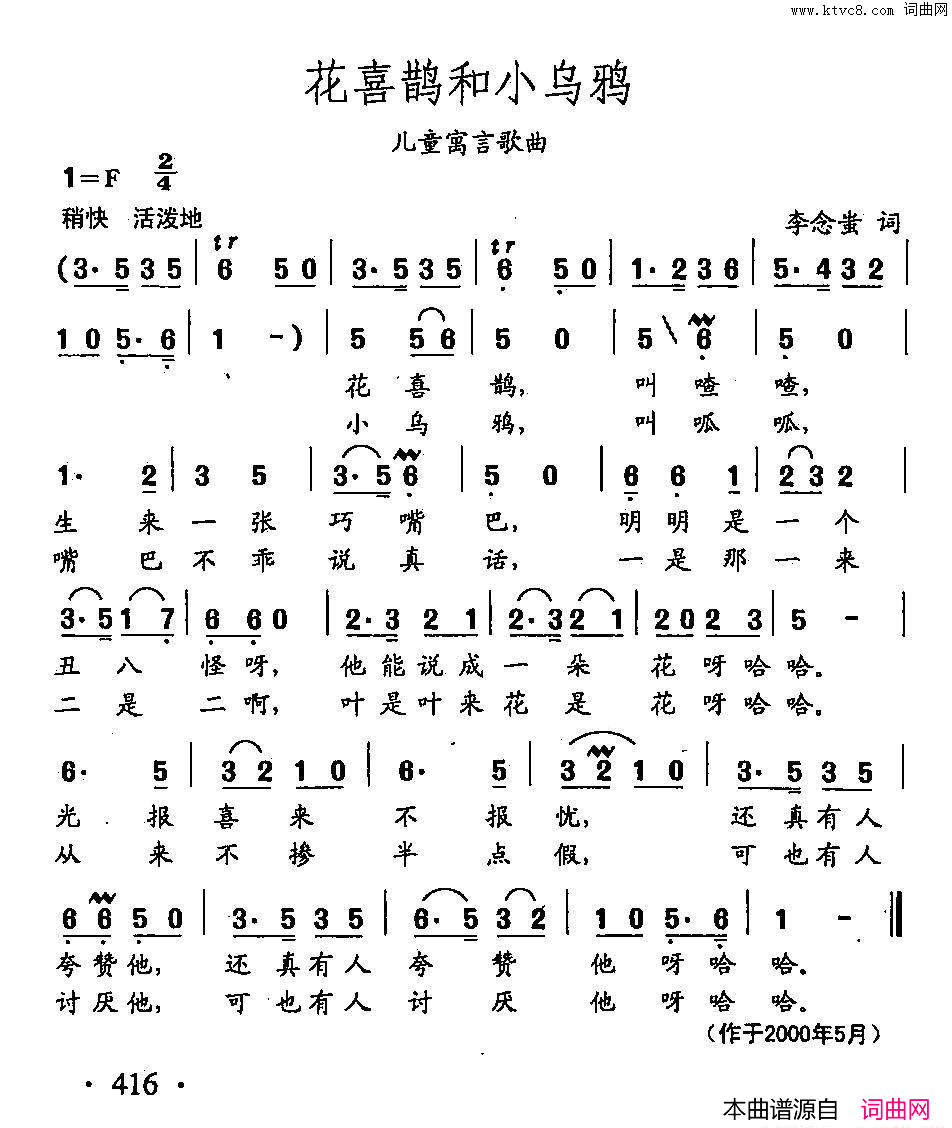 www.ktvc8.com 词曲网
花喜鹊和小乌鸦
儿童寓言歌曲
1=F 2/4
稍快 活泼地
李念蚩 词
(3·5 3 5 | tr 6 5 0 | 3·5 3 5 | tr 6 5 0 | 1·2 3 6 | 5·4 3 2 |
1 0 5·6 | 1 -) | 5 5 6 | 5 0 | 5 6 | 5 0 |
花喜鹊, 叫喳喳,
小乌鸦, 叫呱呱,
1· 2 | 3 5 | 3·5 6 | 5 0 | 6 6 1 | 2 3 2 |
生来一张巧嘴巴, 明明是一个
嘴巴不乖说真话, 一是那一来
3·5 1 7 | 6 6 0 | 2·3 2 1 | 2·3 2 1 | 2 0 2 3 | 5 - |
丑八怪呀, 他能说成一朵花呀哈哈。
二是二啊, 叶是叶来花是花呀哈哈。
6· 5 | 3 2 1 0 | 6· 5 | 3 2 1 0 | 3·5 3 5 |
光报喜来不报忧, 还真有人
从来不掺半点假, 可也有人
6 6 5 0 | 3·5 3 5 | 6·5 3 2 | 1 0 5·6 | 1 - ‖
夸赞他, 还真有人夸赞他呀哈哈。
讨厌他, 可也有人讨厌他呀哈哈。
(作于2000年5月)
· 416 ·
本曲谱源自 词曲网